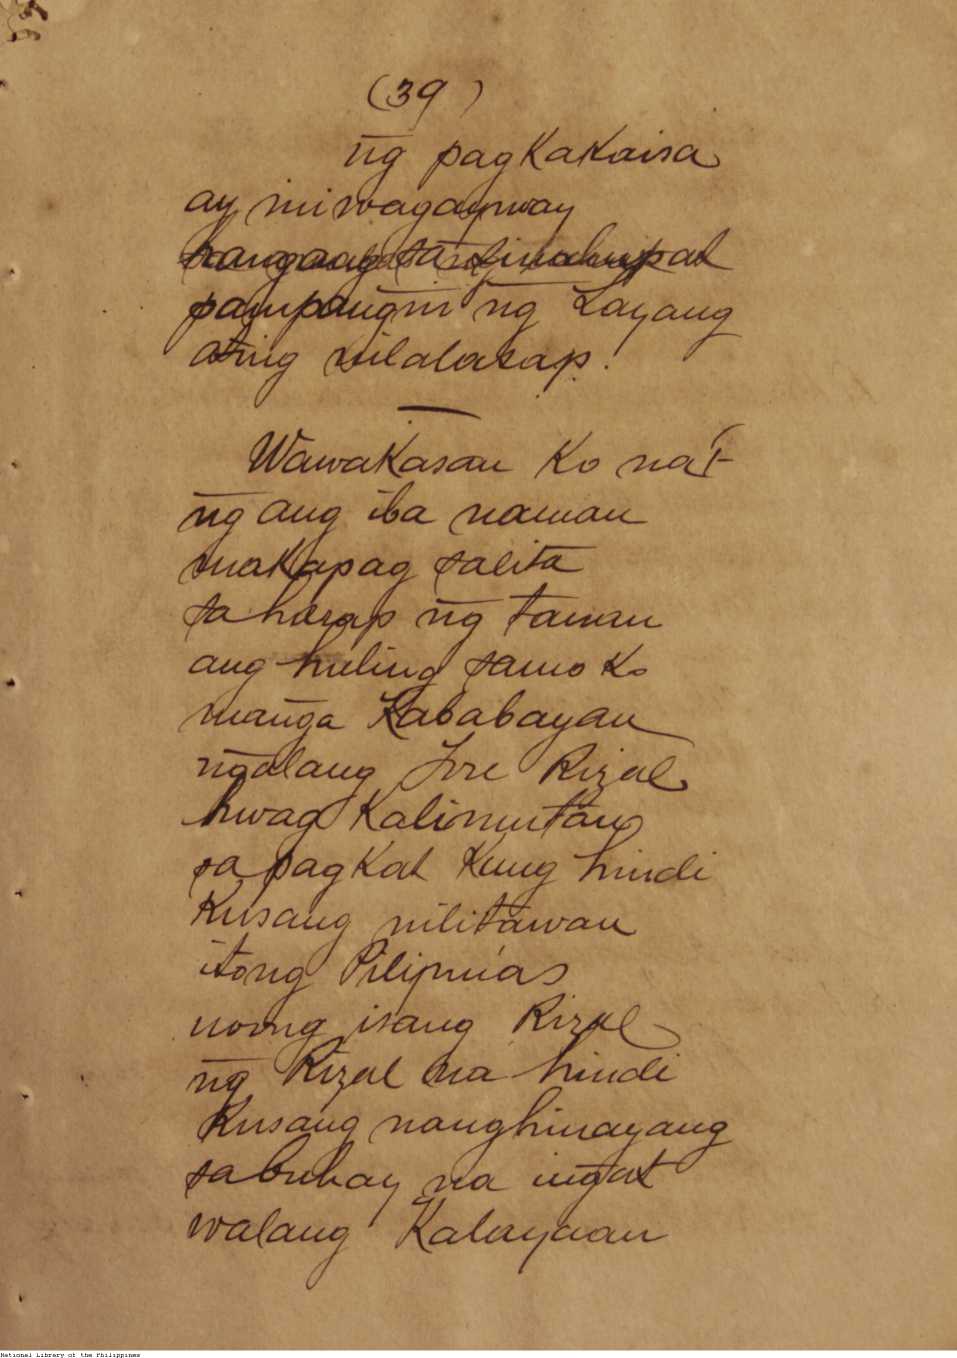 (39)
n̄g pagkakaisa
ay iniwagayway
sa
pampan̄gin n̄g Layang
ating nilalasap.
Wawakasan Ko na't
n̄g ang iba naman
makapag salita
sa harap n̄g tanan
ang huling samo Ko
man̄ga Kababayan
n̄galang Jose Rizal
hwag Kalimutan
sa pagkat Kung hindi
Kusang nilitawan
itong Pilipinas
noong isang Rizal
n̄g Rizal na hindi
Kusang nanghinayang
sa buhay na in̄gat
walang Kalayaan
National Library of the Philippines